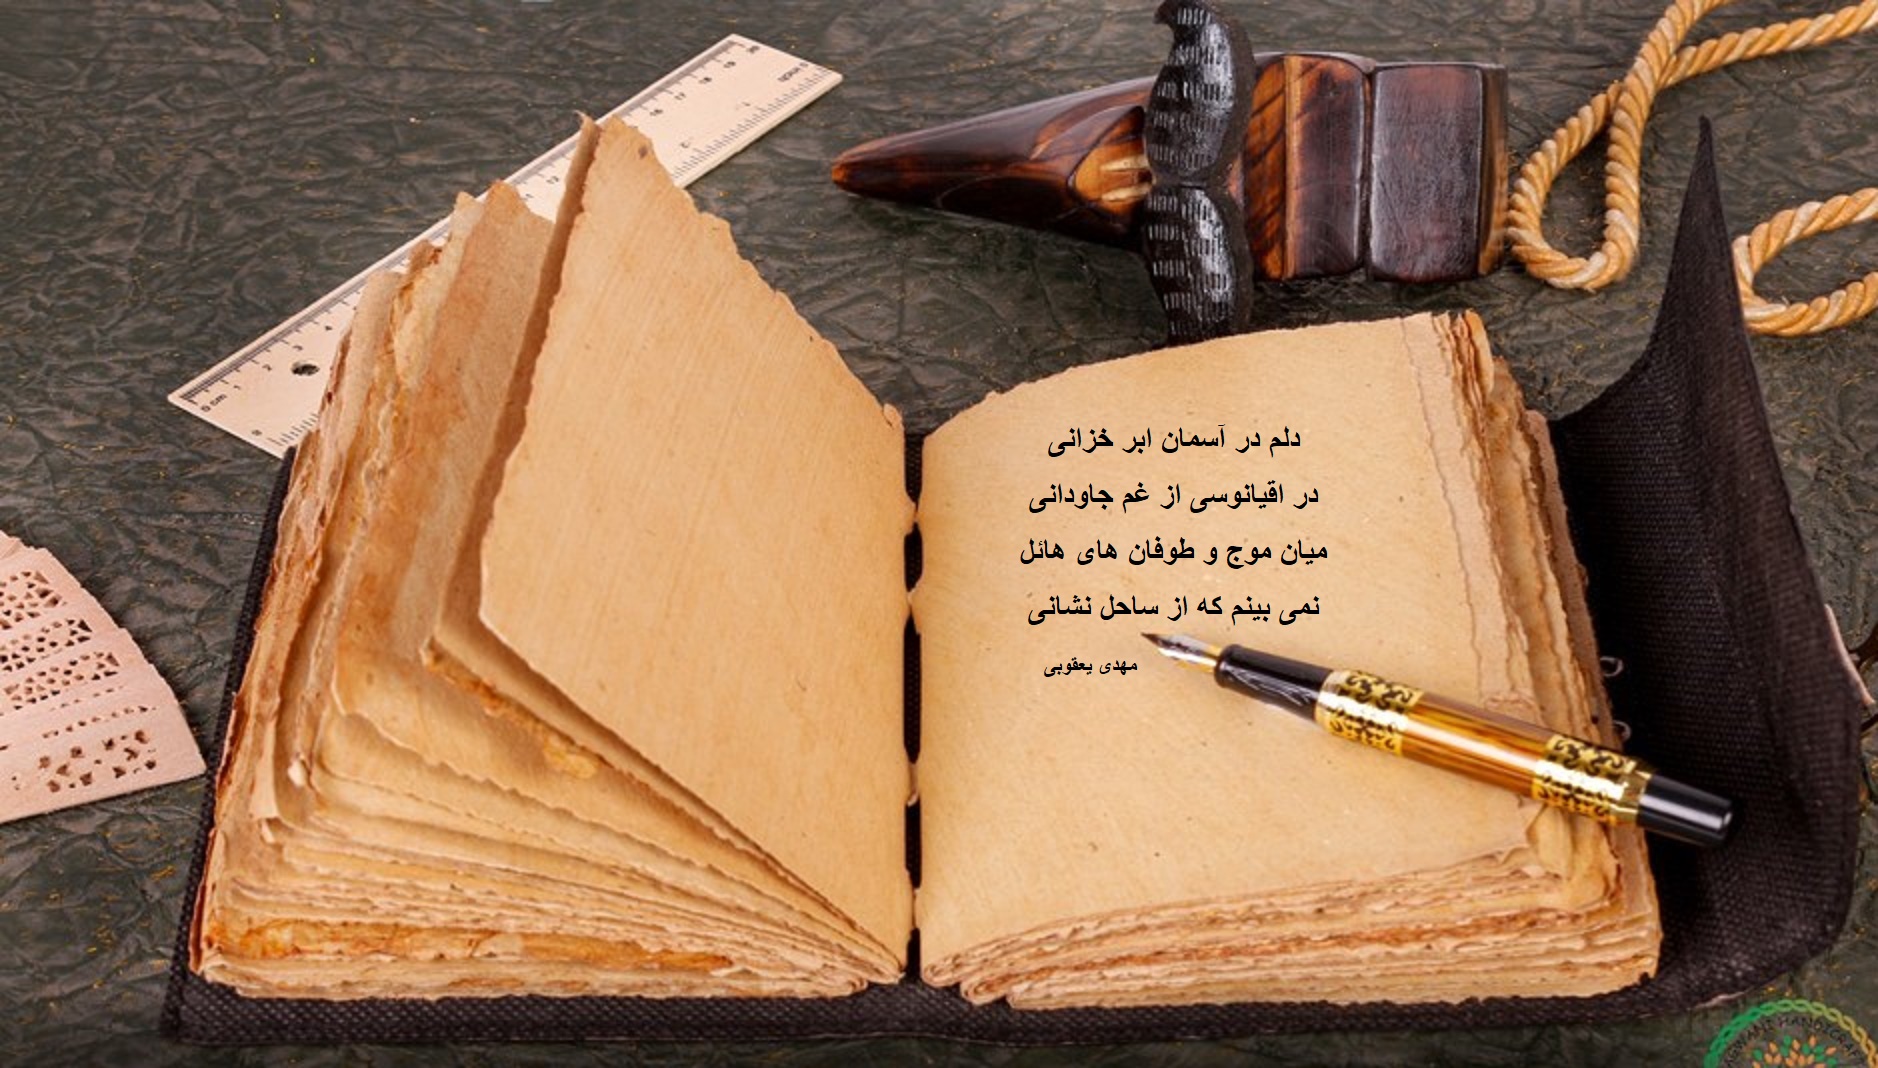 دلم در آسمان ابر خزانی
در اقیانوسی از غم جاودانی
میان موج و طوفان های هائل
نمی بینم که از ساحل نشانی
مهدی یعقوبی
0 cm 1 2 3 4 11 12 16 17 18 19 20